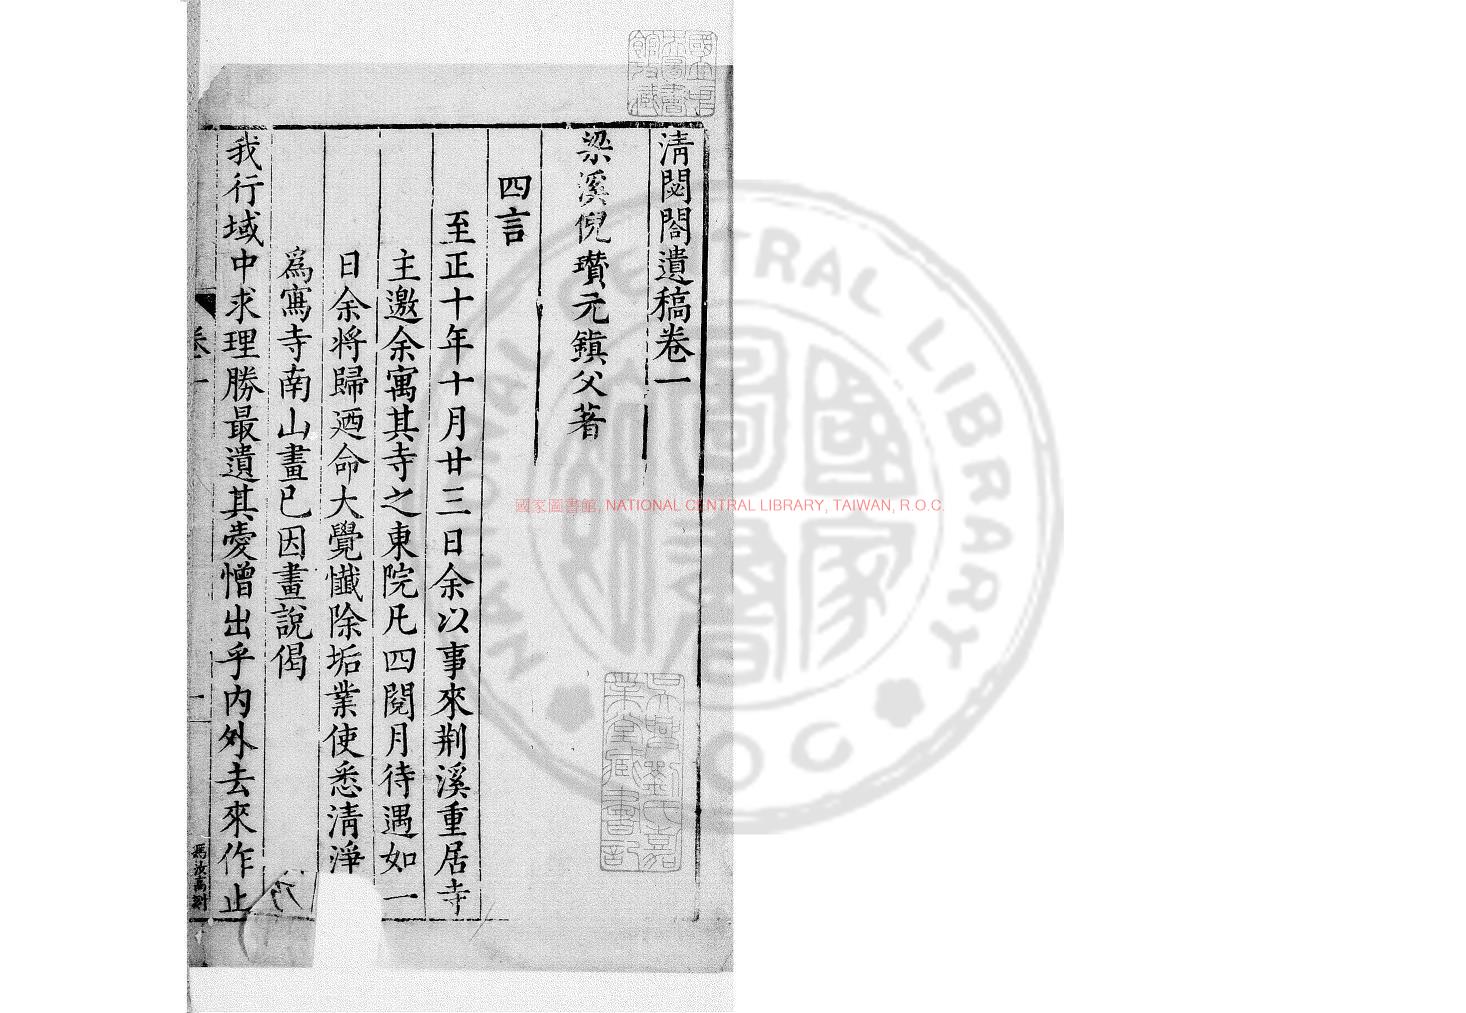 清閟閣遺稿卷一
梁溪倪瓚元鎮父著
四言
至正十年十月廿三日余以事來荆溪重居寺
主邀余寓其寺之東院凡四閱月待遇如一
日余將歸迺命大覺懺除垢業使悉清淨
爲寫寺南山畫已因畫說偈
我行域中求理勝最遺其愛憎出乎内外去來作止
乃
卷一
一
國家圖書館, NATIONAL CENTRAL LIBRARY, TAIWAN, R.O.C.
NATIONAL CENTRAL LIBRARY
國家圖書